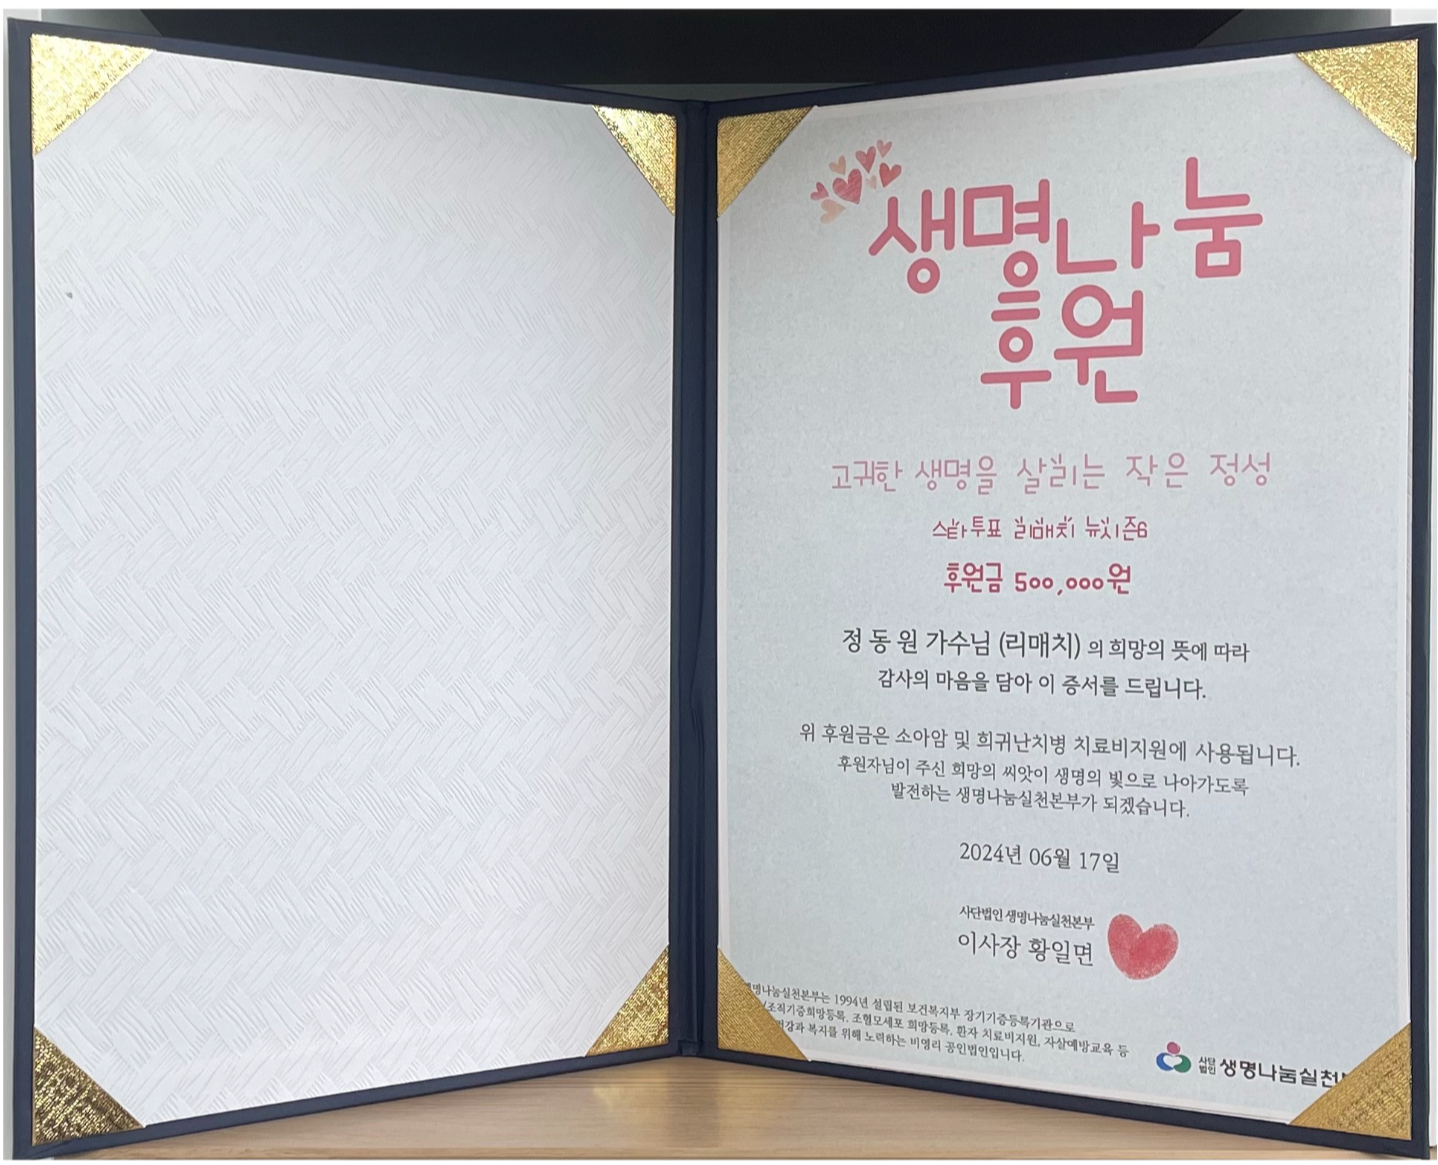 생명나눔
후원
고귀한 생명을 살리는 작은 정성
스타투표 리매치 뉴시즌6
후원금 500,000원
정 동 원 가수님 (리매치) 의 희망의 뜻에 따라
감사의 마음을 담아 이 증서를 드립니다.
위 후원금은 소아암 및 희귀난치병 치료비지원에 사용됩니다.
후원자님이 주신 희망의 씨앗이 생명의 빛으로 나아가도록
발전하는 생명나눔실천본부가 되겠습니다.
2024년 06월 17일
사단법인 생명나눔실천본부
이사장 황일면
생명나눔실천본부는 1994년 설립된 보건복지부 장기기증등록기관으로
/조직기증희망등록, 조혈모세포 희망등록, 환자 치료비지원, 자살예방교육 등
복지를 위해 노력하는 비영리 공인법인입니다.
사단법인 생명나눔실천